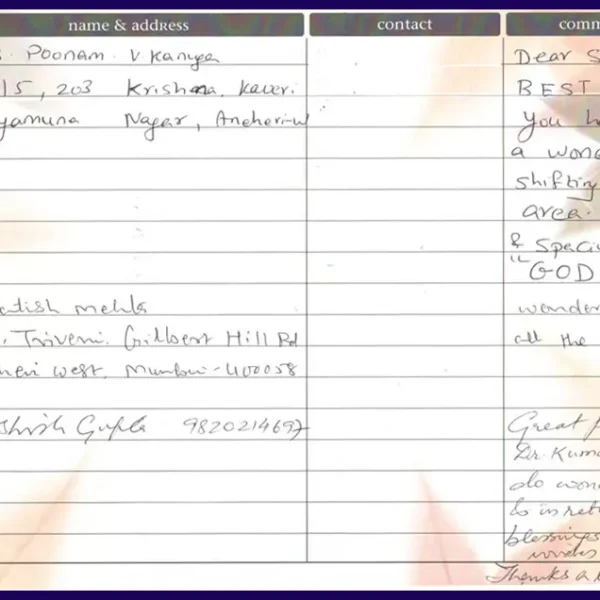 name & address contact comm
Poonam V Kanya
15, 203 Krishna, Kaveri Best
Dear S
BEST
yamuna Nagar, Andheri-W You h
a won
shifting
area.
& Speci
"GOD
mehta wonder
Triveni. Gilbert Hill Rd all the
west, Mumbai-400058
Gupta 9820214697 Great
Dr. Kum
do won
blessings
Thanks a